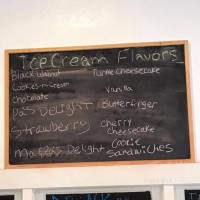 Ice Cream Flavors
Black walnut
Cookies-n-Cream
Chocolate
Pa's DELIGHT
Strawberry
Delight
Turtle Cheesecake
Vanilla
Butterfinger
Cherry
Cheesecake
Cookie
Sandwiches